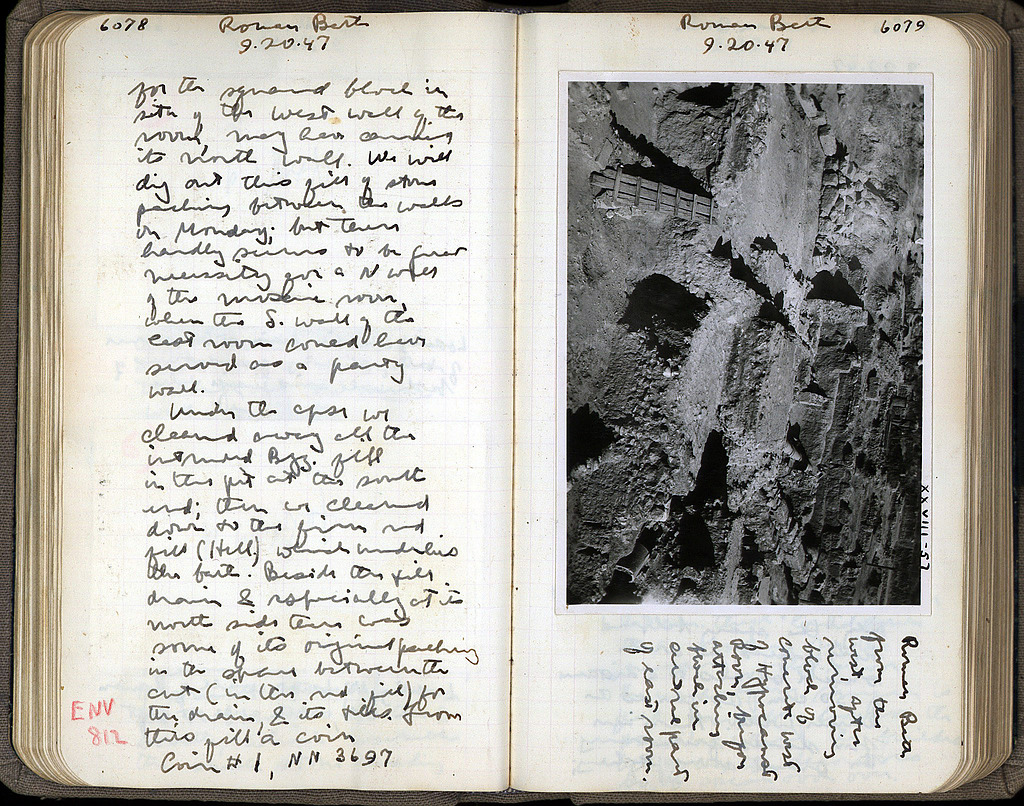 6078
Roman Bath
9.20.47
for the squared block in
situ of the west wall of the
room, may have carried
its north wall. We will
dig out this fill of stone
packing between the walls
on Monday; but there
hardly seems to be great
necessity for a N wall
of the mosaic room,
when the S. wall of the
east room could have
served as a party
wall.
Under the apse we
cleared away all the
intruded Byz. fill
in the pit at the south
end; then we cleared
down to the firm red
fill (Hell) which underlies
the bath. Beside the tile
drain & especially at its
north side there was
some of its original packing
in the space between the
cut (in the red fill) for
the drain, & its tiles. From
this fill a coin
Coin # 1, NN 3697
ENV
812
Roman Bath
9.20.47
6079
XXVIII-57
Roman Bath
from the
west after
removing
block of
concrete west
of Hypocaust
floor; before
attacking
pool in
and no part
of east room.